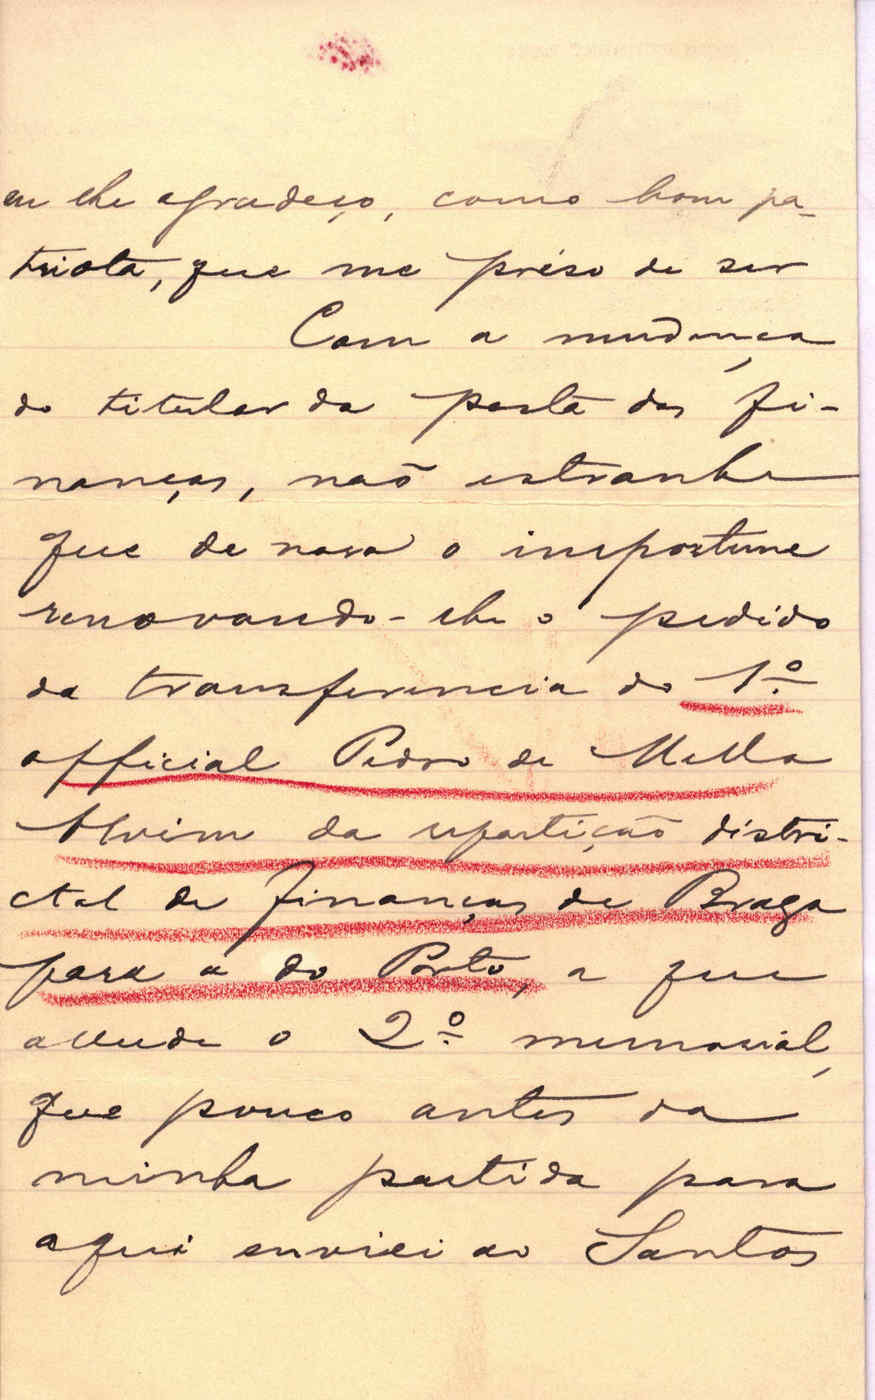 eu lhe agradeço, como bom pa-
triota, que me préso de ser
Com a mudança
do titular da pasta das fi-
nanças, não estranhe
que de novo o importune
renovando-lhe o pedido
da transferencia do 1º
official Pedro de Mello
Alvim da repartição distri-
ctal de finanças de Braga
para a do Porto, a que
allude o 2º memorial,
que pouco antes da
minha partida para
aqui enviei ao Santos